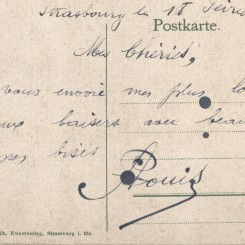 Strasbourg le 18 Février
Postkarte.
Mes Chéries,
vous envoie mes plus
baisers avec
bises
Louis
Kunstverlag, Strassburg i. Els.